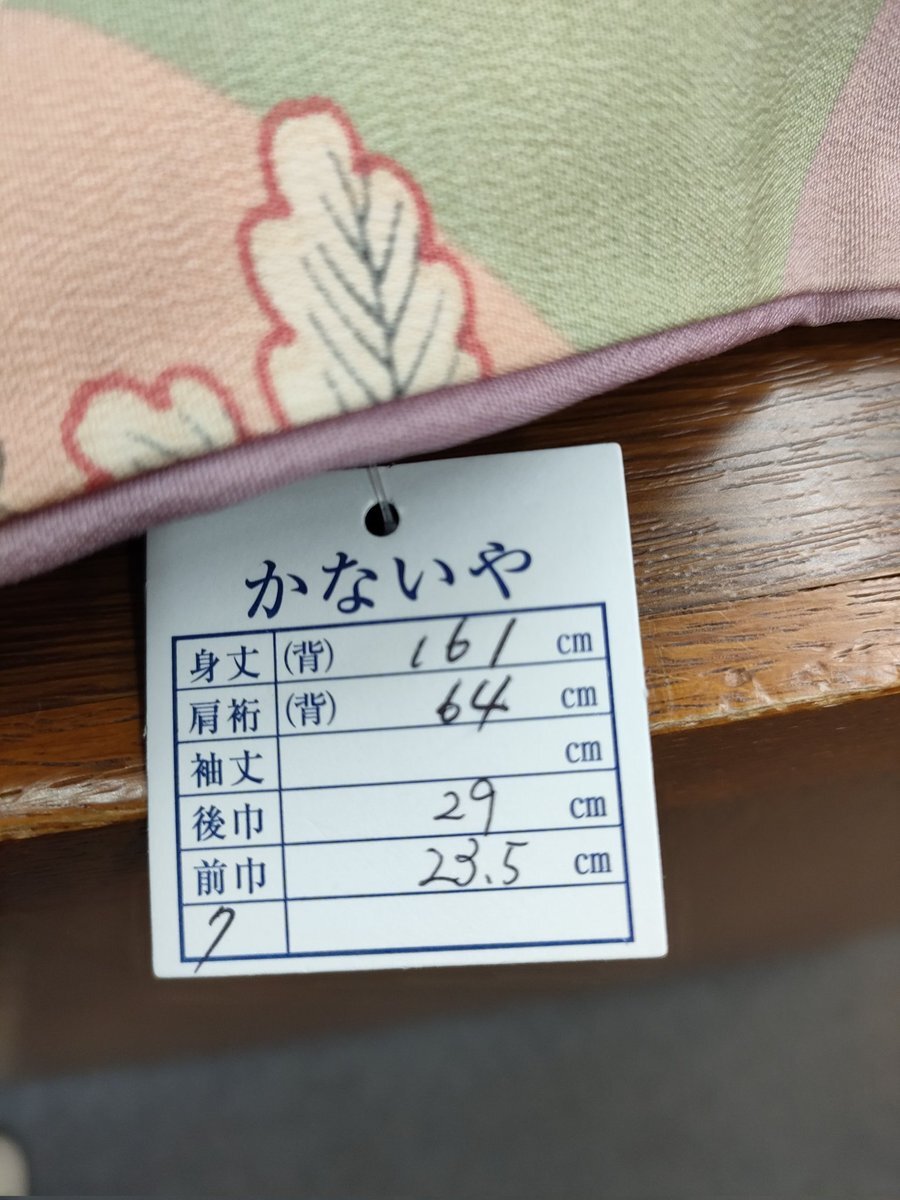 かないや
身丈 (背) 161 cm
肩裄 (背) 64 cm
袖丈 cm
後巾 29 cm
前巾 23.5 cm
7